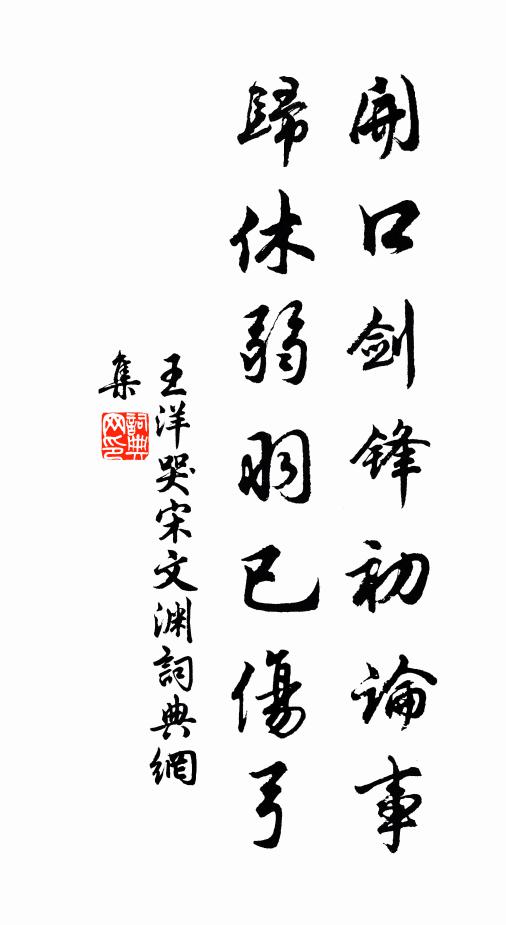 開口劍鋒初論事
歸休弱羽已傷弓
王洋哭宋文淵詞典網
集
詞典网印